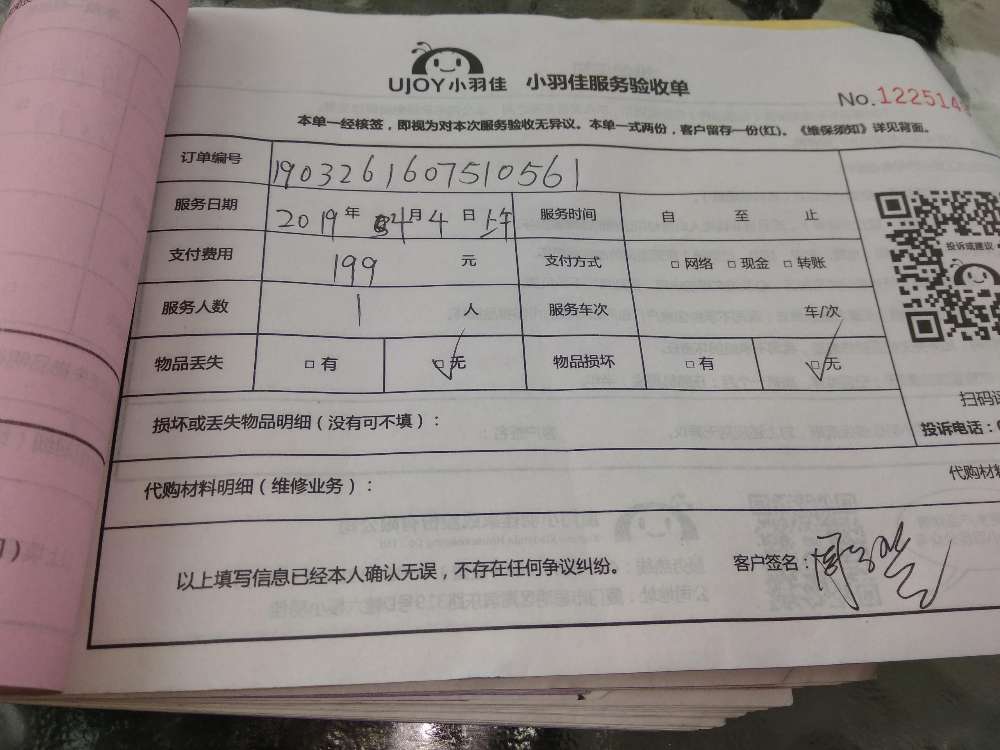 UJOY小羽佳 小羽佳服务验收单
No.122514
本单一经核签，即视为对本次服务验收无异议。本单一式两份，客户留存一份(红)。《维保须知》详见背面。
订单编号 1903261607510561
服务日期 2019年4月4日上午 服务时间 自 至 止
投诉或建议
支付费用 199元 支付方式 □网络 □现金 □转账
服务人数 1人 服务车次 车/次
物品丢失 □有 ☑无 物品损坏 □有 ☑无
扫码
损坏或丢失物品明细（没有可不填）：
投诉电话：
代购材料明细（维修业务）：
代购材料
以上填写信息已经本人确认无误，不存在任何争议纠纷。 客户签名：